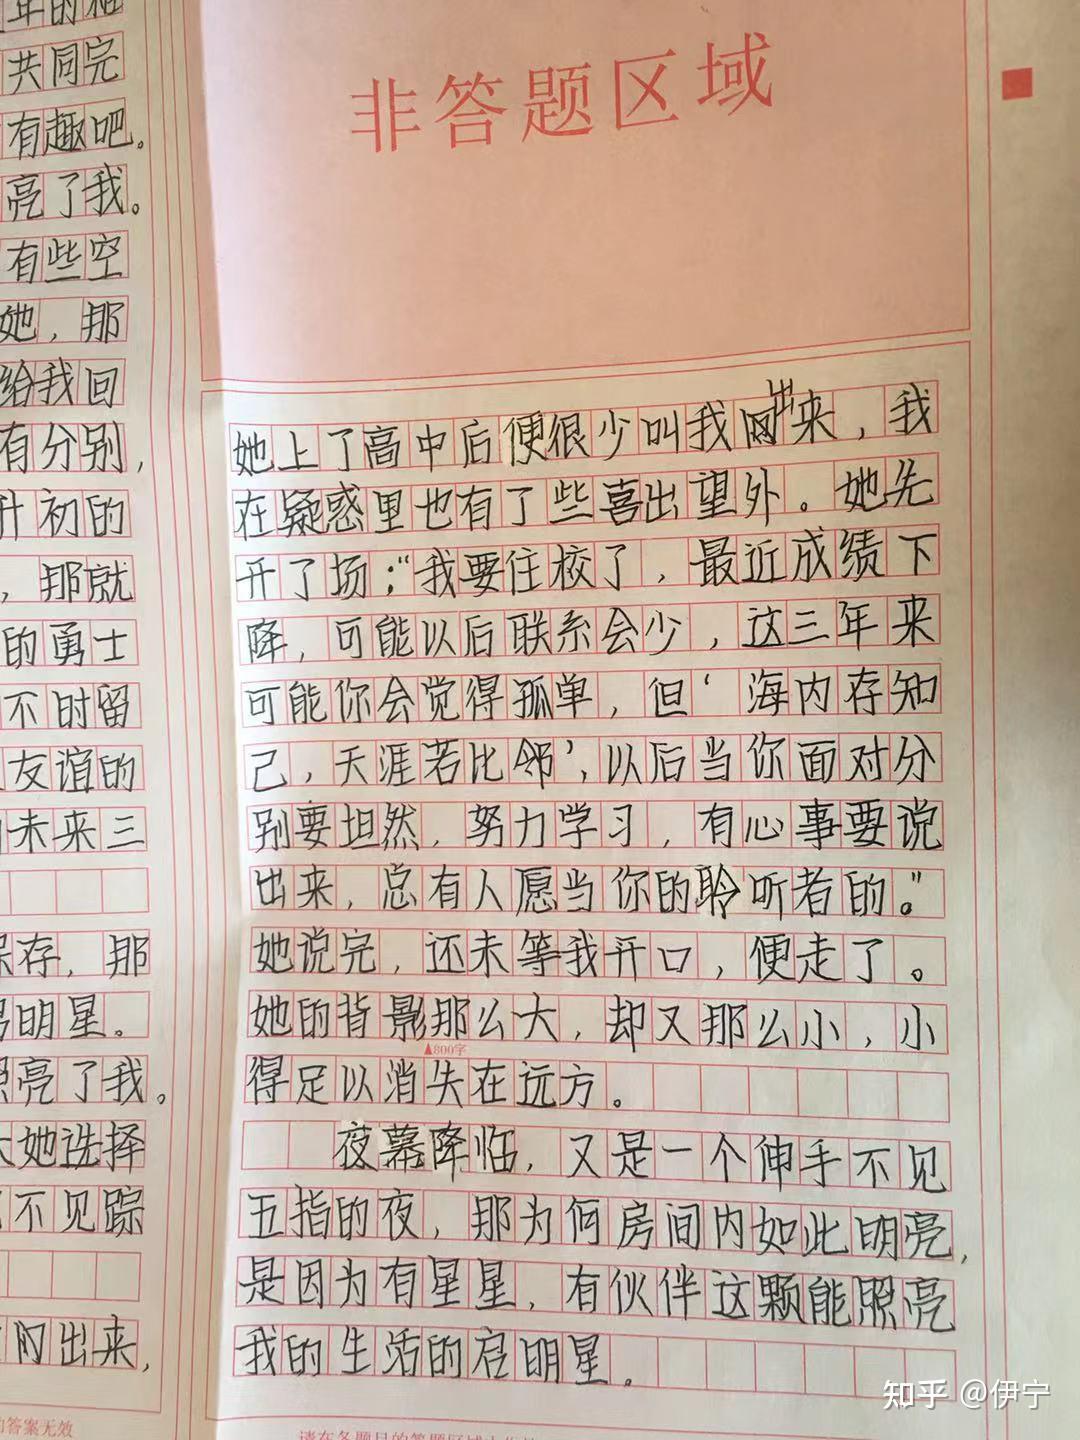 年的相
共同完
有趣吧。
亮了我。
有些空
她，那
给我回
有分别，
升初的
，那就
的勇士
不时留
友谊的
未来三
保存，那
明星。
照亮了我。
她选择
不见踪
出来，
的答案无效
非答题区域
她上了高中后便很少叫我出来，我
在疑惑里也有了些喜出望外。她先
开了场：“我要住校了，最近成绩下
降，可能以后联系会少，这三年来
可能你会觉得孤单，但‘海内存知
己，天涯若比邻’，以后当你面对分
别要坦然，努力学习，有心事要说
出来，总有人愿当你的聆听者的。”
她说完，还未等我开口，便走了。
她的背影那么大，却又那么小，小
▲800字
得足以消失在远方。
夜幕降临，又是一个伸手不见
五指的夜，那为何房间内如此明亮，
是因为有星星，有伙伴这颗能照亮
我的生活的启明星。
知乎 @伊宁